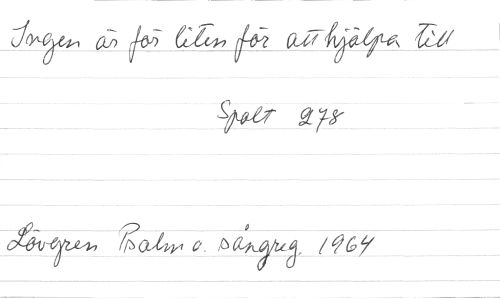 Ingen är för liten för att hjälpa till
Spalt 278
Lövgren Psalm o. sångreg. 1964